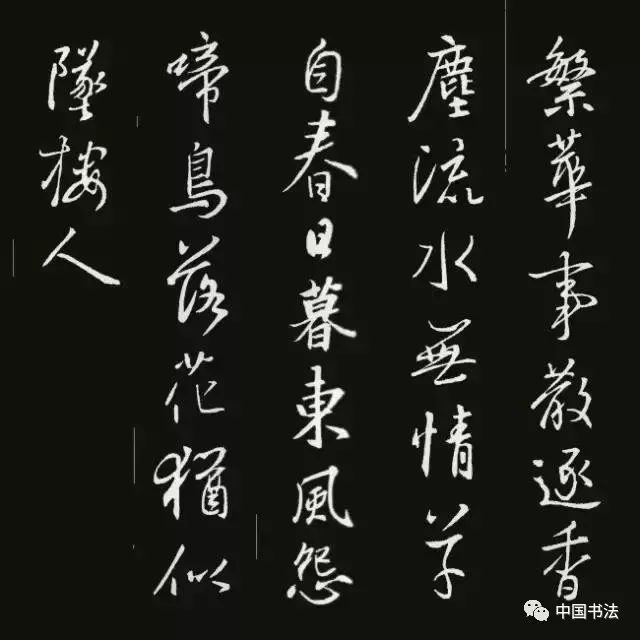 繁華事散逐香
塵流水無情草
自春日暮東風怨
啼鳥落花猶似
墜樓人
中国书法